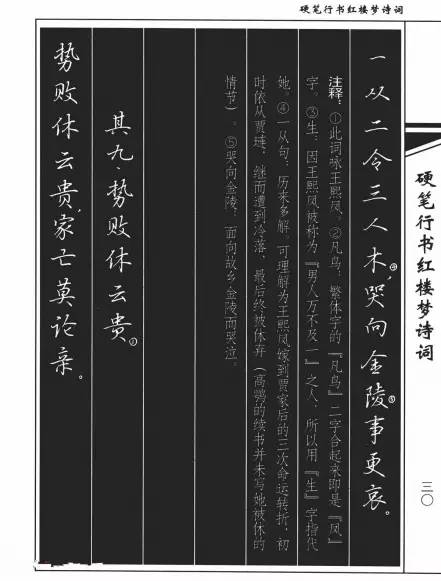 硬笔行书红楼梦诗词
硬笔行书红楼梦诗词
三〇
一从二令三人木④，哭向金陵⑤事更哀。
注释：①此词咏王熙凤。②凡鸟：繁体字的『凡鸟』二字合起来即是『凤』
字。③生：因王熙凤被称为『男人万不及一』之人，所以用『生』字指代
她。④一从句：历来多解。可理解为王熙凤嫁到贾家后的三次命运转折，初
时依从贾琏，继而遭到冷落，最后终被休弃（高鹗的续书并未写她被休的
情节）。⑤哭向金陵：面向故乡金陵而哭泣。
其九·势败休云贵①
势败休云贵，家亡莫论亲。